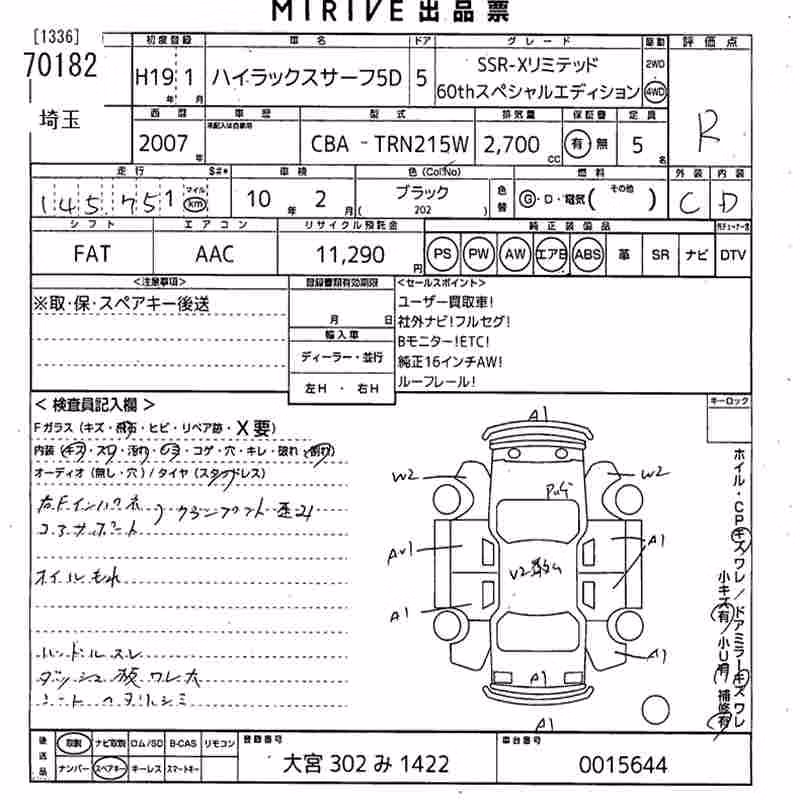 MIRIVE 出品票
[1336]
70182
埼玉
初度登録 車名 ドア グレード 駆動 評価点
H19年 1月 ハイラックスサーフ5D 5 SSR-Xリミテッド 2WD
60thスペシャルエディション 4WD
R
西暦 車歴 型式 排気量 保証書 定員
2007年 CBA - TRN215W 2,700CC 有 無 5名
走行 S#* 車検 色(Col No) 燃料 外装 内装
145,751 マイル km 10年 2月 ブラック 色替 G・D・電気( その他 ) C D
( 202 )
シフト エアコン リサイクル預託金 純正装備品
FAT AAC 11,290円 PS PW AW エアB ABS 革 SR ナビ DTV
<注意事項> 登録書類有効期限 <セールスポイント>
※取・保・スペアキー後送 ユーザー買取車!
月 日 社外ナビ!フルセグ!
輸入車 Bモニター!ETC!
ディーラー・並行 純正16インチAW!
左H・右H ルーフレール!
<検査員記入欄> キーロック
Fガラス(キズ・飛石・ヒビ・リペア跡・X要)
内装(キズ・スレ・汚れ・のヨ・コゲ・穴・キレ・破れ・割れ)
オーディオ(無し・穴)/タイヤ(スタッドレス)
右Fインパネ
コアサポート
オイルもれ
ハンドルスレ
ダッシュ板ワレ大
A1
W2 W2
A1
A1
V2
A1 A1
A1
A1
ホイル・CPキズワレ/ドアミラーキズワレ
小キズ有/小U有 補修有
後送品 取説 ナビ取説 ロム/SD B-CAS リモコン 登録番号 車台番号
ナンバー スペアキー キーレス スマートキー 大宮 302 み 1422 0015644